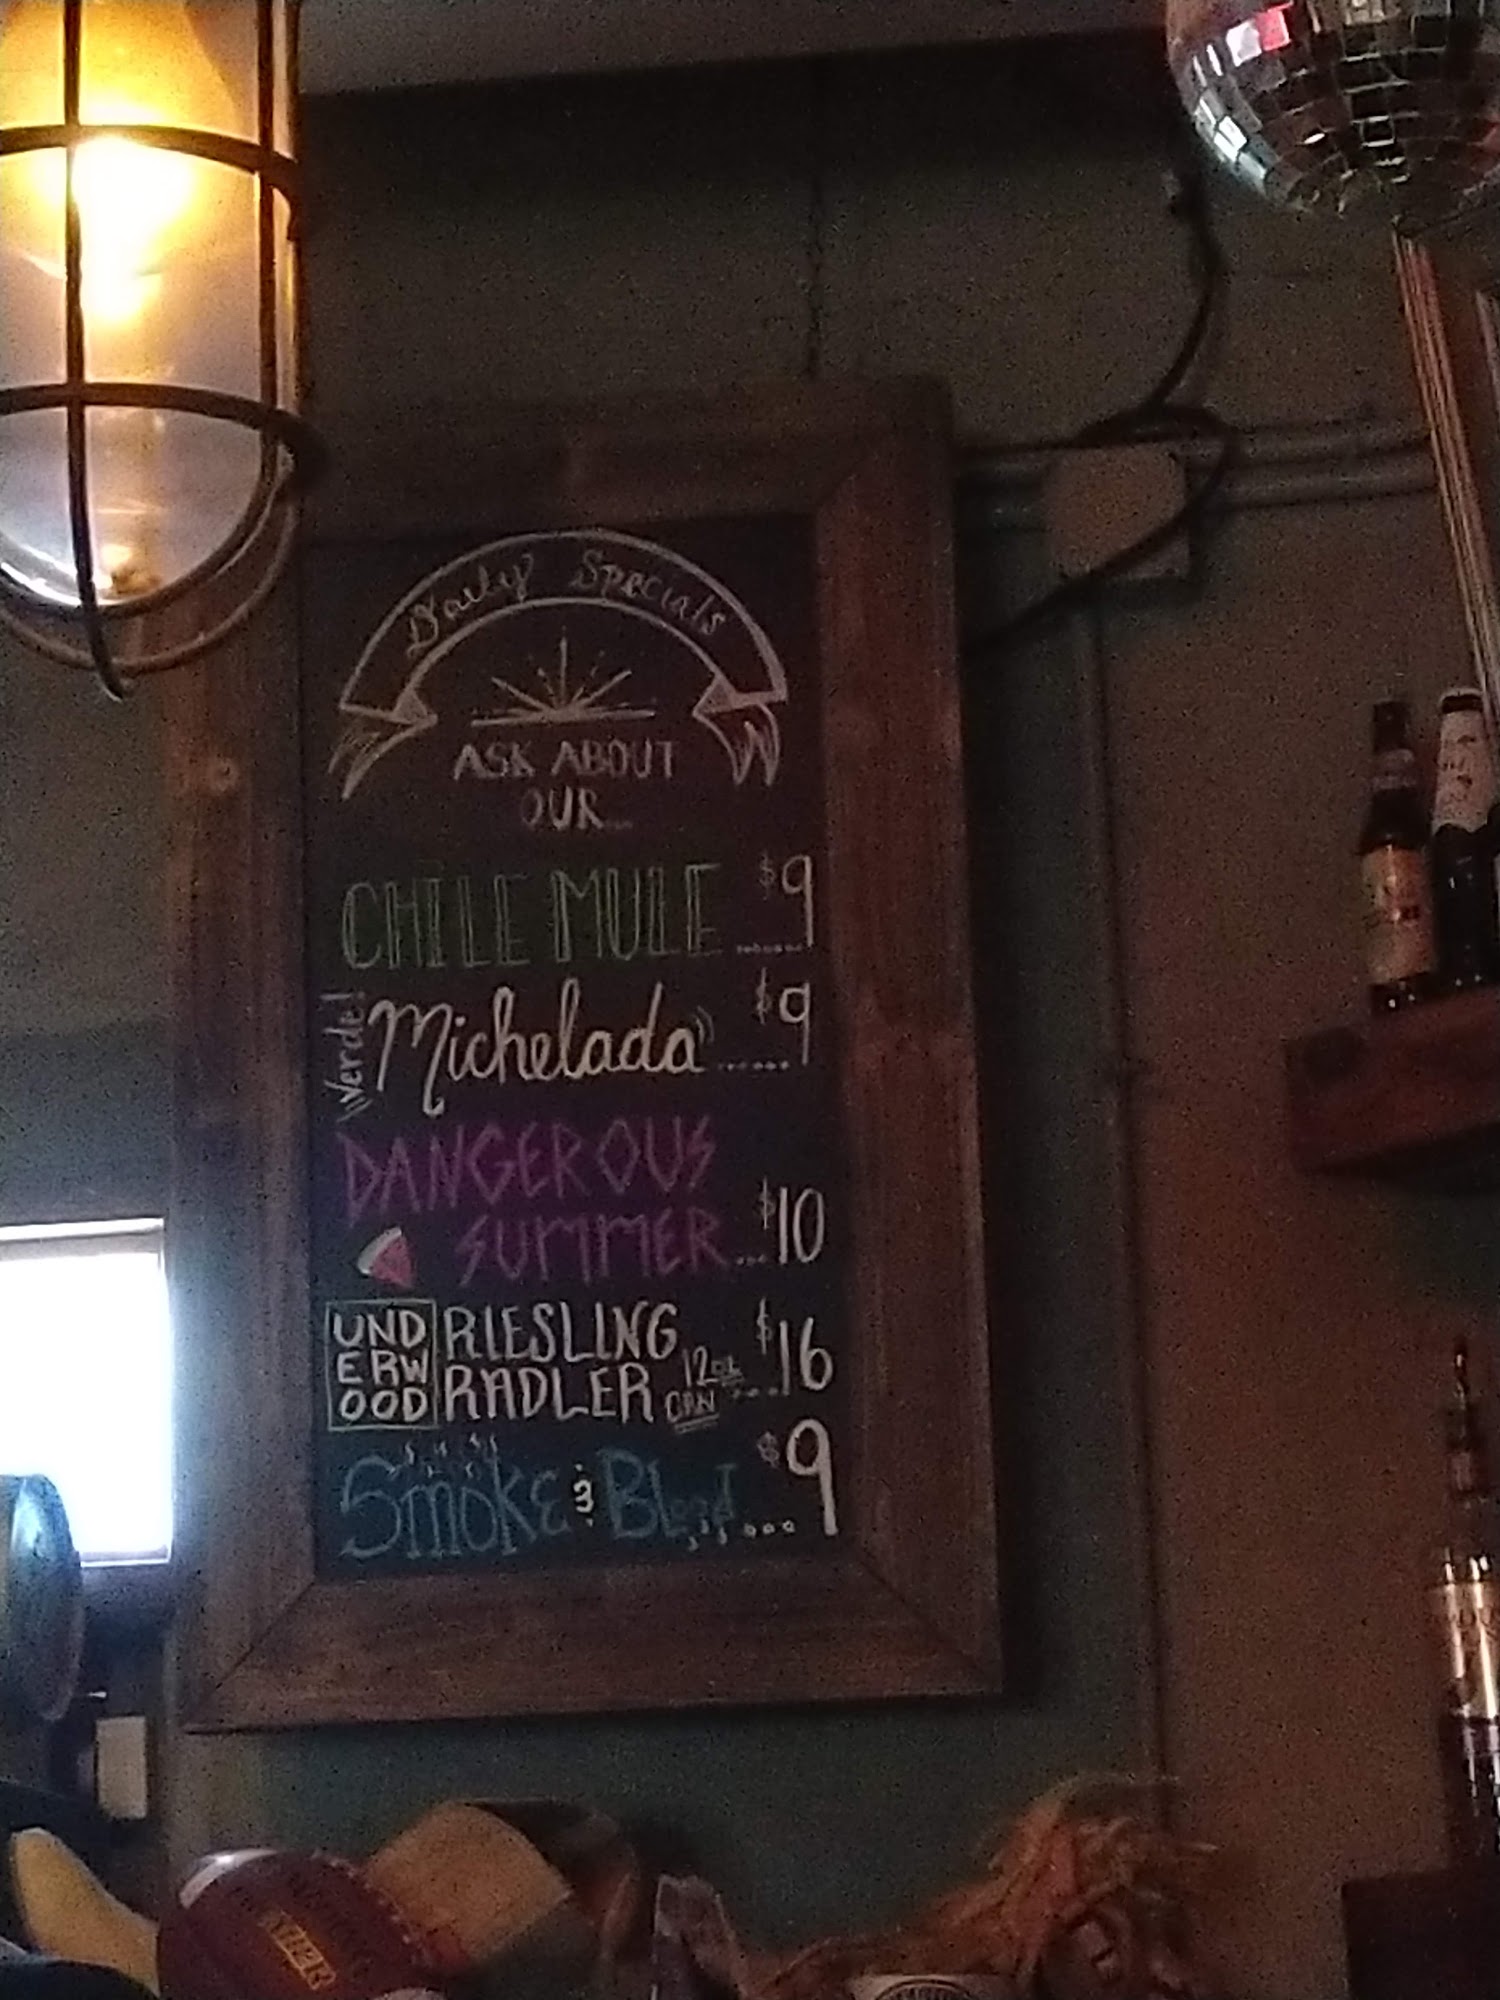 Daily Specials
ASK ABOUT
OUR...
CHILE MULE ....... $9
Verde! Michelada ...... $9
DANGEROUS
SUMMER ... $10
UND
ERW
OOD
RIESLING
RADLER 12oz CAN .... $16
Smoke & Blood .... $9